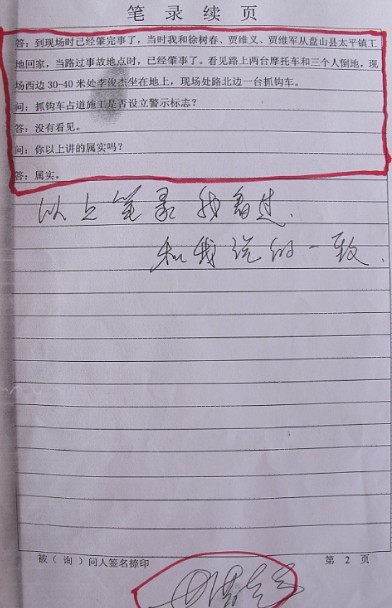 笔录续页
答：到现场时已经肇完事了，当时我和徐树春、贾维义、贾维军从盘山县太平镇工
地回家，当路过事故地点时，已经肇事了。看见路上两台摩托车和三个人倒地，现
场西边30-40米处李俊杰坐在地上，现场处路北边一台抓钩车。
问：抓钩车占道施工是否设立警示标志？
答：没有看见。
问：你以上讲的属实吗？
答：属实。
以上笔录我看过.
和我说的一致.
被（询）问人签名捺印
第 2 页